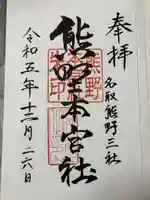 奉拝
名取熊野三社
熊野本宮社
令和五年十二月二六日